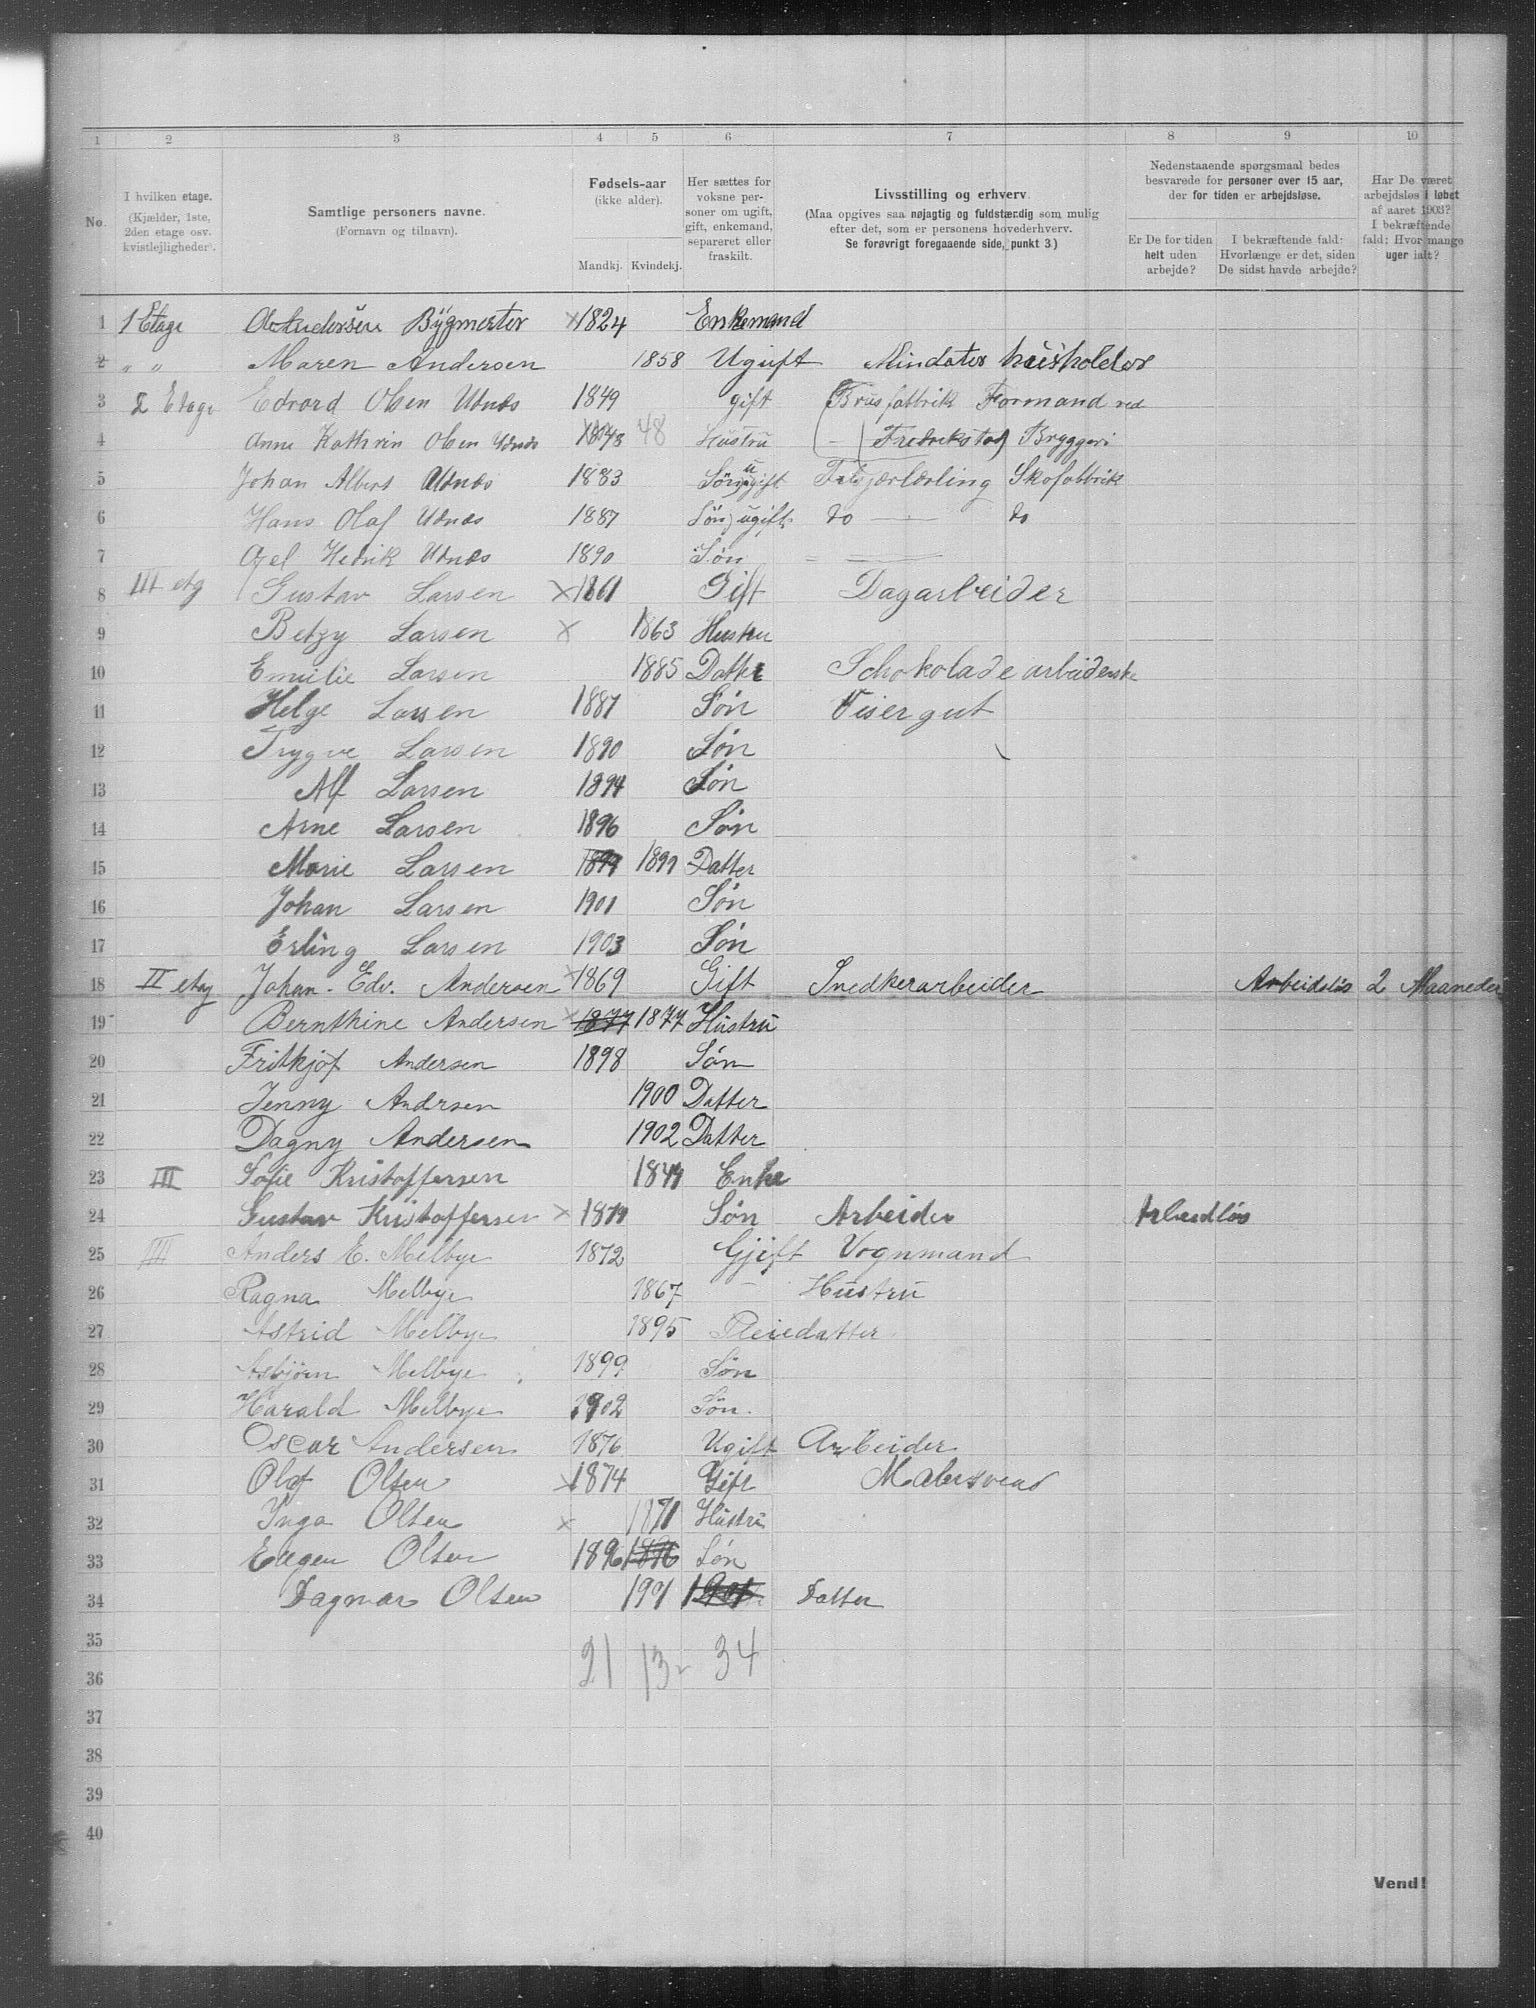 1 2 3 4 5 6 7 8 9 10
No.
I hvilken etage. (Kjælder, 1ste, 2den etage osv. kvistlejligheder).
Samtlige personers navne. (Fornavn og tilnavn).
Fødsels-aar (ikke alder). Mandkj. Kvindekj.
Her sættes for voksne personer om ugift, gift, enkemand, separeret eller fraskilt.
Livsstilling og erhverv. (Maa opgives saa nøjagtig og fuldstærdig som mulig efter det, som er personens hovederhverv. Se forøvrigt foregaaende side, punkt 3.)
Nedenstaaende spørgsmaal bedes besvarede for personer over 15 aar, der for tiden er arbejdsløse.
Er De for tiden helt uden arbejde?
I bekræftende fald: Hvorlænge er det, siden De sidst havde arbejde?
Har De været arbejdsløs i løbet af aaret 1903? I bekræftende fald: Hvor mange uger ialt?
1 1 Etage Andersen Bygmester × 1824 Enkemand
2 " " Maren Andersen 1858 Ugift husholder
3 2 Etage Edvard Olsen Udnæs 1849 gift Brusfabbrik Formand ved
4 Anne Kathrin Olsen Udnæs 1848 48 Hustru Fredrikstad Bryggeri
5 Johan Albert Udnæs 1883 Søn ugift Skofabbrik
6 Hans Olaf Udnæs 1887 Søn ugift do — do
7 Axel Hedrik Udnæs 1890 Søn
8 III etg Gustav Larsen × 1861 Gift Dagarbeider
9 Betzy Larsen × 1863 Hustru
10 Emilie Larsen 1885 Datter Schokoladearbeiderske
11 Helge Larsen 1887 Søn Visergut
12 Trygve Larsen 1890 Søn
13 Alf Larsen 1894 Søn
14 Arne Larsen 1896 Søn
15 Marie Larsen 1899 1899 Datter
16 Johan Larsen 1901 Søn
17 Erling Larsen 1903 Søn
18 II etg Johan. Edv. Andersen × 1869 Gift Snedkerarbeider Arbeidsløs 2 Maaneder
19 Bernthine Andersen × 1877 1877 Hustru
20 Fritkjof Andersen 1898 Søn
21 Jenny Andrsen 1900 Datter
22 Dagny Andersen 1902 Datter
23 III Sofie Kristoffersen 1849 Enke
24 Gustav Kristoffersen × 1879 Søn Arbeider Arbeidløs
25 IIII Anders E. Melbye 1872 Gjift Vognmand
26 Ragna Melbye 1867 — Hustru
27 Astrid Melbye 1895 Pleiedatter
28 Asbjørn Melbye 1899 Søn
29 Harald Melbye 1902 Søn.
30 Oscar Andersen 1876 Ugift Arbeider
31 Olaf Olsen × 1874 Gift Malersvend
32 Inga Olsen × 1871 Hustru
33 Eugen Olsen 1896 1896 Søn
34 Dagmar Olsen 1901 1901 Datter
35
36 21 13 34
37
38
39
40
Vend!